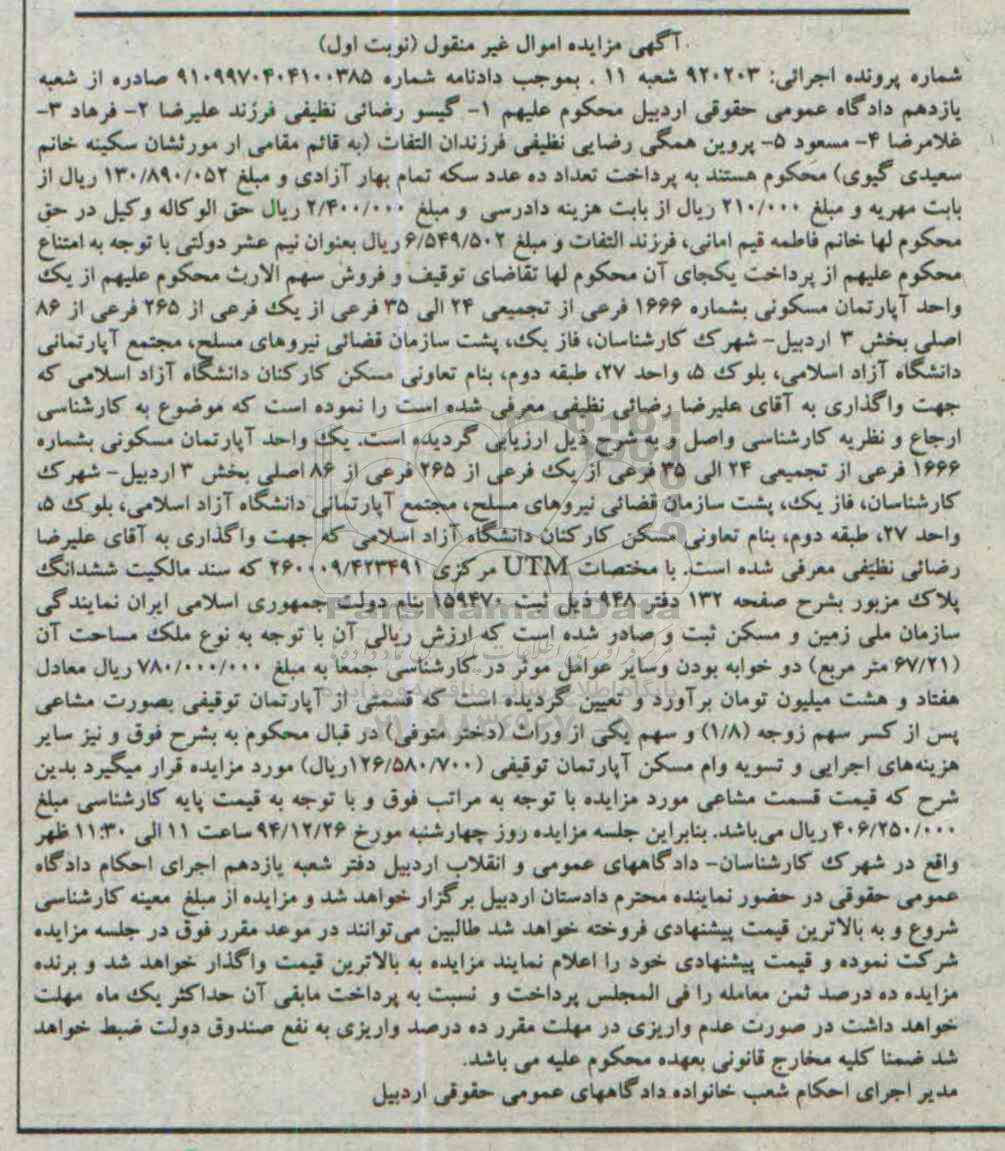 آگهی مزایده اموال غیر منقول (نوبت اول)
شماره پرونده اجرائی: ۹۲۰۲۰۳ شعبه ۱۱ . بموجب دادنامه شماره ۹۱۰۹۹۷۰۴۰۴۱۰۰۳۸۵ صادره از شعبه
یازدهم دادگاه عمومی حقوقی اردبیل محکوم علیهم ۱- گیسو رضائی نظیفی فرزند علیرضا ۲- فرهاد ۳-
غلامرضا ۴- مسعود ۵- پروین همگی رضایی نظیفی فرزندان التفات (به قائم مقامی ار مورثشان سکینه خانم
سعیدی گیوی) محکوم هستند به پرداخت تعداد ده عدد سکه تمام بهار آزادی و مبلغ ۱۳۰/۸۹۰/۰۵۲ ریال از
بابت مهریه و مبلغ ۲۱۰/۰۰۰ ریال از بابت هزینه دادرسی و مبلغ ۲/۴۰۰/۰۰۰ ریال حق الوکاله وکیل در حق
محکوم لها خانم فاطمه قیم امانی، فرزند التفات و مبلغ ۶/۵۴۹/۵۰۲ ریال بعنوان نیم عشر دولتی با توجه به امتناع
محکوم علیهم از پرداخت یکجای آن محکوم لها تقاضای توقیف و فروش سهم الارث محکوم علیهم از یک
واحد آپارتمان مسکونی بشماره ۱۶۶۶ فرعی از تجمیعی ۲۴ الی ۳۵ فرعی از یک فرعی از ۲۶۵ فرعی از ۸۶
اصلی بخش ۳ اردبیل- شهرک کارشناسان، فاز یک، پشت سازمان قضائی نیروهای مسلح، مجتمع آپارتمانی
دانشگاه آزاد اسلامی، بلوک ۵، واحد ۲۷، طبقه دوم، بنام تعاونی مسکن کارکنان دانشگاه آزاد اسلامی که
جهت واگذاری به آقای علیرضا رضائی نظیفی معرفی شده است را نموده است که موضوع به کارشناسی
ارجاع و نظریه کارشناسی واصل و به شرح ذیل ارزیابی گردیده است. یک واحد آپارتمان مسکونی بشماره
۱۶۶۶ فرعی از تجمیعی ۲۴ الی ۳۵ فرعی از یک فرعی از ۲۶۵ فرعی از ۸۶ اصلی بخش ۳ اردبیل- شهرک
کارشناسان، فاز یک، پشت سازمان قضائی نیروهای مسلح، مجتمع آپارتمانی دانشگاه آزاد اسلامی، بلوک ۵،
واحد ۲۷، طبقه دوم، بنام تعاونی مسکن کارکنان دانشگاه آزاد اسلامی که جهت واگذاری به آقای علیرضا
رضائی نظیفی معرفی شده است. با مختصات UTM مرکزی ۲۶۰۰۰۹/۴۲۳۴۹۱ که سند مالکیت ششدانگ
پلاک مزبور بشرح صفحه ۱۳۲ دفتر ۹۴۸ ذیل ثبت ۱۵۹۴۷۰ بنام دولت جمهوری اسلامی ایران نمایندگی
سازمان ملی زمین و مسکن ثبت و صادر شده است که ارزش ریالی آن با توجه به نوع ملک مساحت آن
(۶۷/۲۱ متر مربع) دو خوابه بودن وسایر عوامل موثر در کارشناسی جمعاً به مبلغ ۷۸۰/۰۰۰/۰۰۰ ریال معادل
هفتاد و هشت میلیون تومان برآورد و تعیین گردیده است که قسمتی از آپارتمان توقیفی بصورت مشاعی
پس از کسر سهم زوجه (۱/۸) و سهم یکی از وراث (دختر متوفی) در قبال محکوم به بشرح فوق و نیز سایر
هزینه‌های اجرایی و تسویه وام مسکن آپارتمان توقیفی (۱۲۶/۵۸۰/۷۰۰ریال) مورد مزایده قرار میگیرد بدین
شرح که قیمت قسمت مشاعی مورد مزایده با توجه به مراتب فوق و با توجه به قیمت پایه کارشناسی مبلغ
۴۰۶/۲۵۰/۰۰۰ ریال می‌باشد. بنابراین جلسه مزایده روز چهارشنبه مورخ ۹۴/۱۲/۲۶ ساعت ۱۱ الی ۱۱:۳۰ ظهر
واقع در شهرک کارشناسان- دادگاههای عمومی و انقلاب اردبیل دفتر شعبه یازدهم اجرای احکام دادگاه
عمومی حقوقی در حضور نماینده محترم دادستان اردبیل برگزار خواهد شد و مزایده از مبلغ معینه کارشناسی
شروع و به بالاترین قیمت پیشنهادی فروخته خواهد شد طالبین می‌توانند در موعد مقرر فوق در جلسه مزایده
شرکت نموده و قیمت پیشنهادی خود را اعلام نمایند مزایده به بالاترین قیمت واگذار خواهد شد و برنده
مزایده ده درصد ثمن معامله را فی المجلس پرداخت و نسبت به پرداخت مابقی آن حداکثر یک ماه مهلت
خواهد داشت در صورت عدم واریزی در مهلت مقرر ده درصد واریزی به نفع صندوق دولت ضبط خواهد
شد ضمنا کلیه مخارج قانونی بعهده محکوم علیه می باشد.
مدیر اجرای احکام شعب خانواده دادگاههای عمومی حقوقی اردبیل